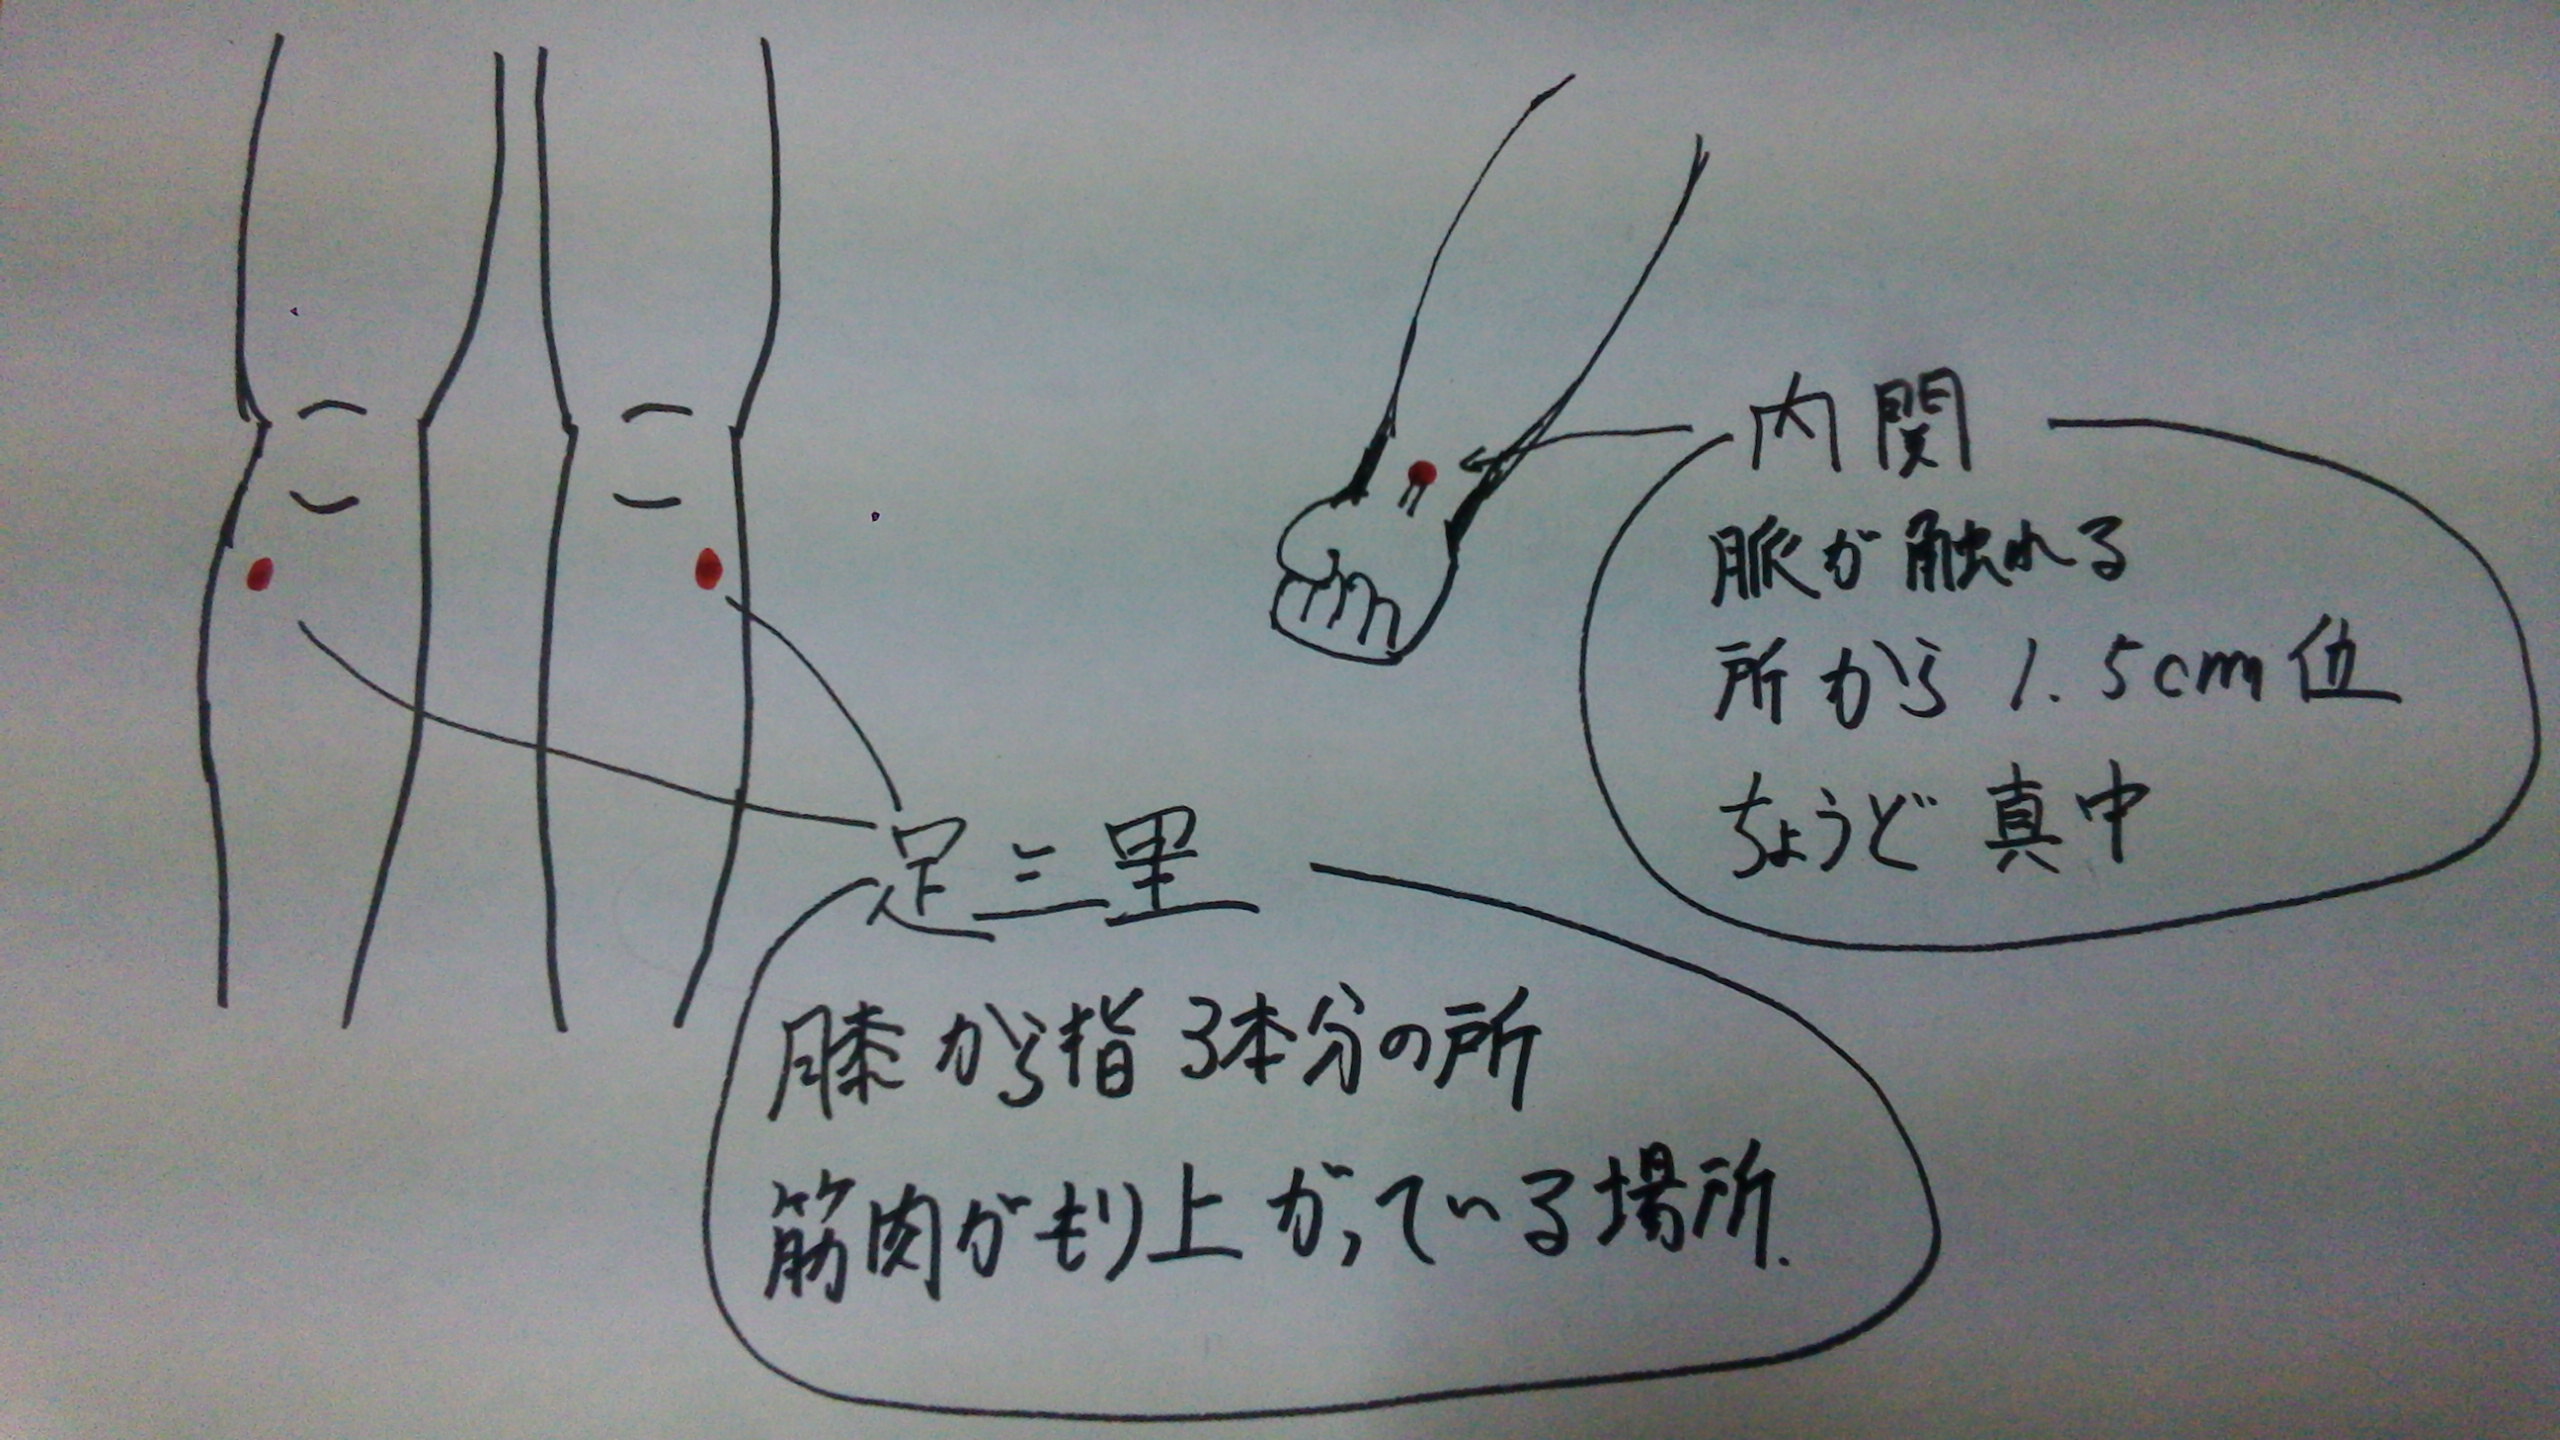 内関
脈が触れる
所から 1.5cm位
ちょうど真中
足三里
膝から指3本分の所
筋肉がもり上がっている場所.